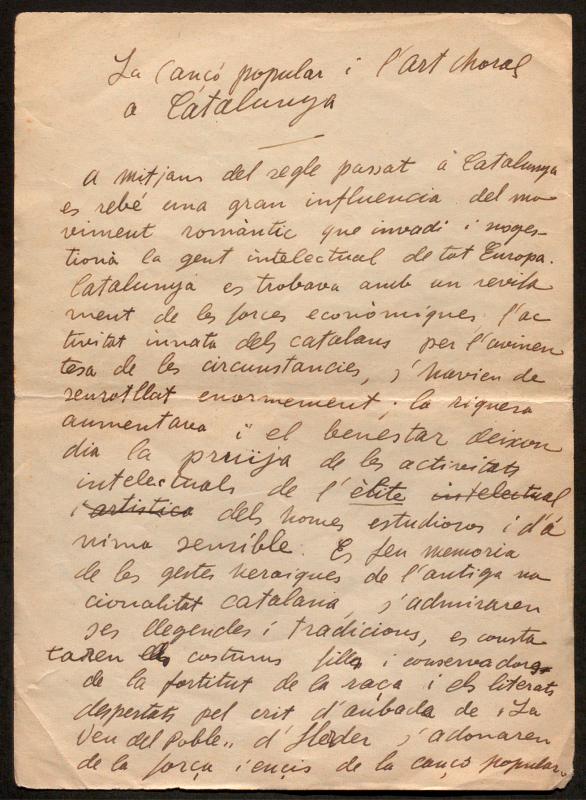 La Cançó popular i l'art choral
a Catalunya
A mitjans del segle passat a Catalunya
es rebé una gran influencia del mo
viment romàntic que invadí i
tionà la gent intelectual de tot Europa.
Catalunya es trobava amb un revifa
ment de les forces econòmiques l'ac
tivitat innata dels catalans per l'avinen
tesa de les circunstancies, s'havien de
senrotllat enormement; la riquesa
aumentava i el benestar deixon
dia la pruïja de les activitats
intelectuals de l'èlite intelectual
i artistica dels homes estudiosos i d'à
nima sensible. Es feu memoria
de les gestes heroiques de l'antiga na
cionalitat catalana, s'admiraren
ses llegendes i tradicions, es consta
taren els costums filles i conservadors
de la fortitut de la raça i els literats
despertats pel crit d'aubada de "La
Veu del Poble" d'Herder s'adonaren
de la força i encis de la cançó popular.